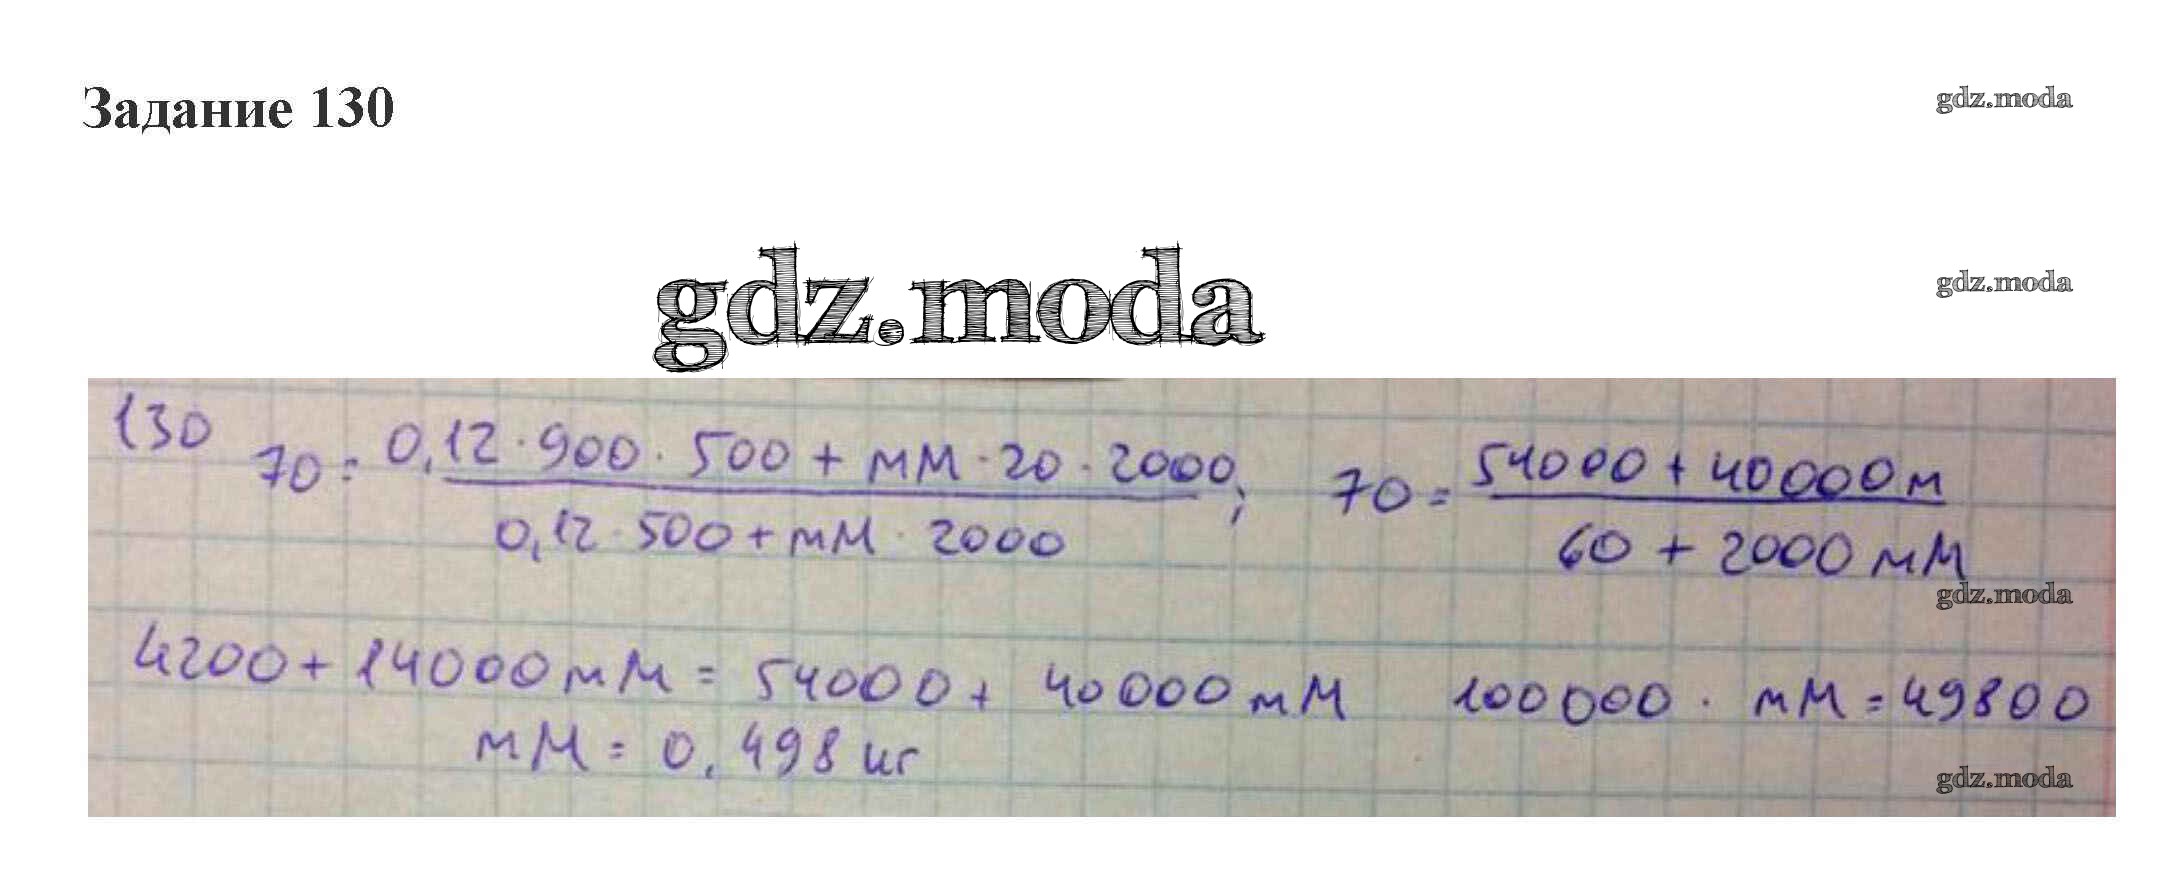 Задание 130
gdz.moda
gdz.moda
gdz.moda
130
70 = 0,12 · 900 · 500 + мМ · 20 · 2000 ; 70 = 54000 + 40000м
0,12 · 500 + мМ · 2000 60 + 2000 мМ
gdz.moda
4200 + 14000 мМ = 54000 + 40000 мМ 100000 · мМ = 49800
мМ = 0,498 кг
gdz.moda